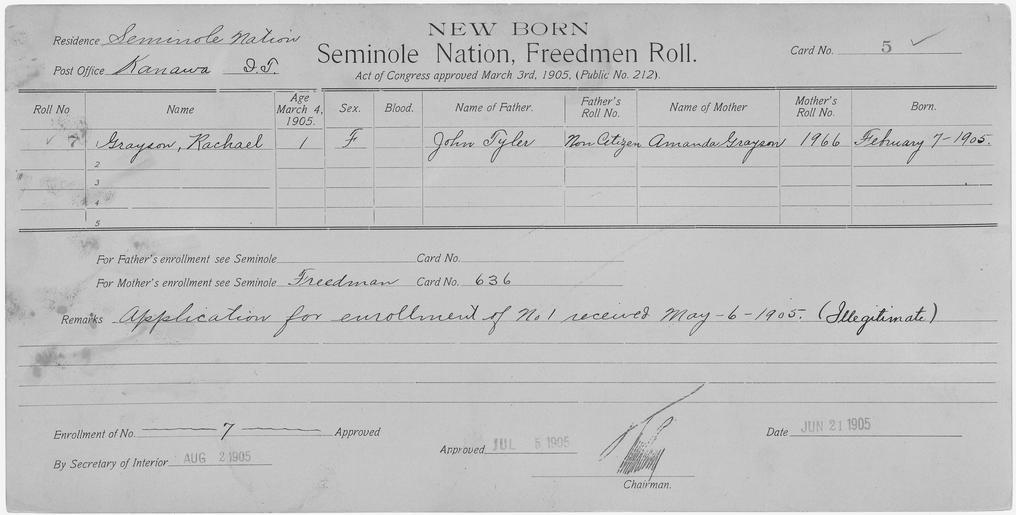 NEW BORN
Residence Seminole Nation
Seminole Nation, Freedmen Roll.
Card No. 5 ✓
Post Office Kanawa I.T.
Act of Congress approved March 3rd, 1905, (Public No. 212).
Roll No Name Age March 4, 1905. Sex. Blood. Name of Father. Father's Roll No. Name of Mother Mother's Roll No. Born.
✓ 7 1 Grayson, Rachael 1 F John Tyler Non Citizen Amanda Grayson 1966 February 7-1905.
2
3
4
5
For Father's enrollment see Seminole Card No.
For Mother's enrollment see Seminole Freedman Card No. 636
Remarks Application for enrollment of No 1 received May-6-1905. (Illegitimate)
Enrollment of No. 7 Approved
Approved JUL 5 1905
Date JUN 21 1905
By Secretary of Interior AUG 2 1905
Chairman.